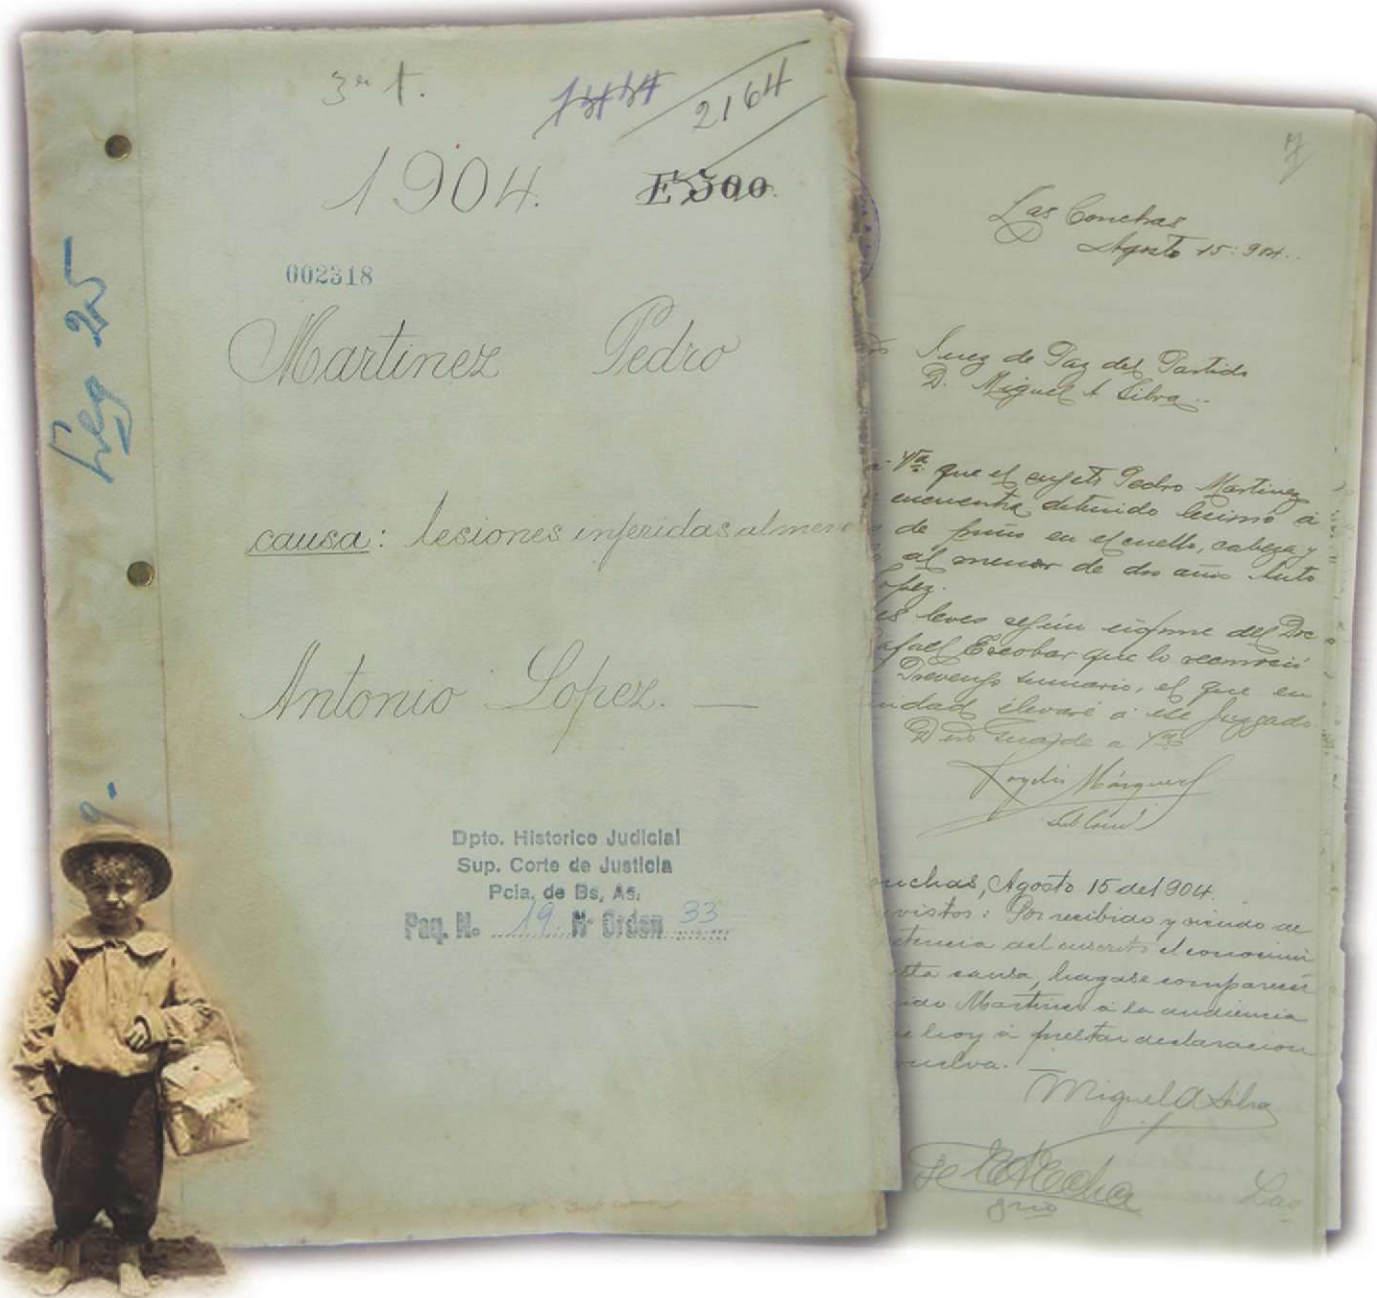 3ra t.
2164
1904.
E 300
002318
Leg 25
Martinez Pedro
causa: lesiones inferidas al meno
Antonio Lopez. —
Dpto. Historico Judicial
Sup. Corte de Justicia
Pcia. de Bs, As.
Paq. No 19 No Orden 33
Las Conchas
Agosto 15: 904..
Juez de Paz del Partido
D. Miguel A Silva..
que el sujeto Pedro Martinez
encuentra detenido lesionó á
de puño en el cuello, cabeza y
al menor de dos años Anto
opez.
es leves según informe del Doc
afael Escobar que lo reconoció
Prevengo sumario, el que en
nidad elevaré á ese Juzgado.
Dios guarde a
Márquez
onchas, Agosto 15 de 1904.
vistos: Por recibido y siendo de
tencia del suscrito el conocimi
sta causa, hagase comparecer
ido Martinez á la audiencia
e hoy á prestar declaracion
vuelva. —
Miguel A Silva
Las